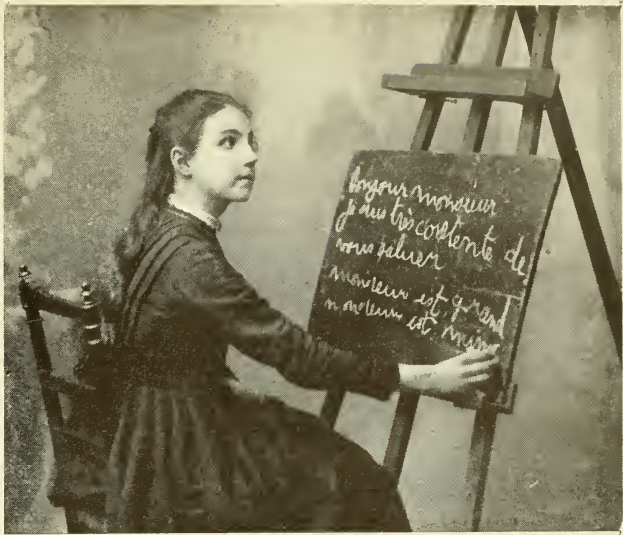 bonjour monsieur
je suis très contente de
vous saluer
monsieur est grand
monsieur est